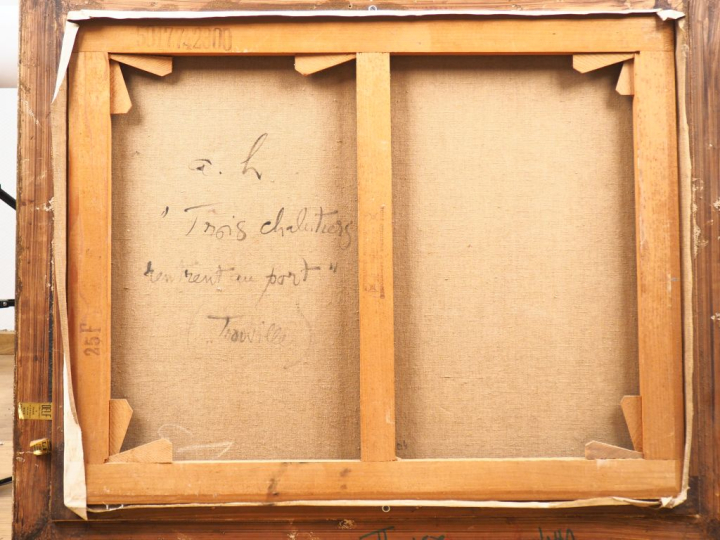 a. h
"Trois chalutiers
rentrent au port"
(Trouville)
25F